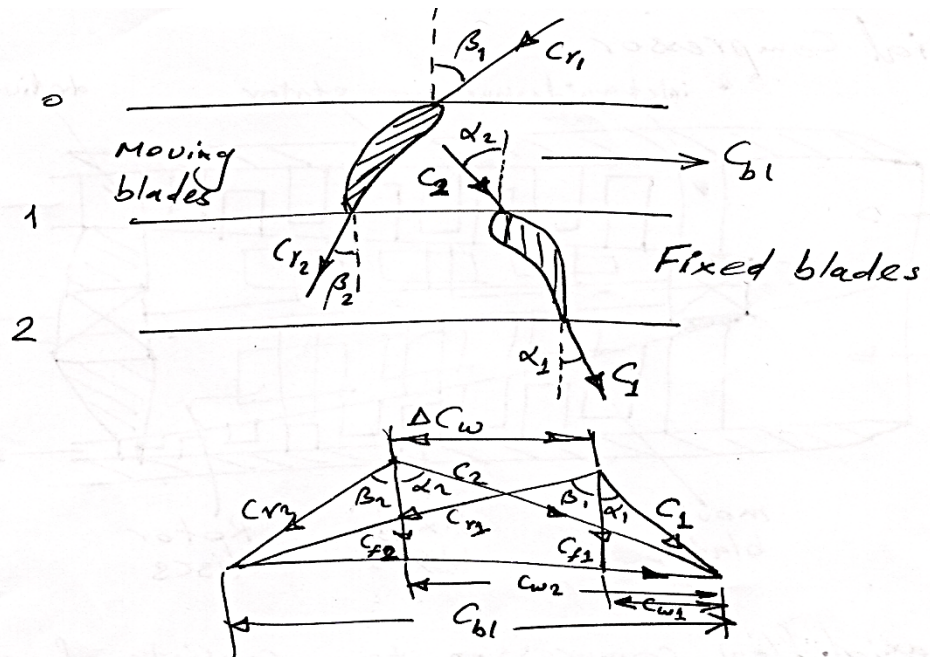 β₁
Cr₁
0
Moving
blades
α₂
C₂
Cbl
1
Cr₂
β₂
Fixed blades
2
α₁
C₁
ΔCw
Cr₂
β₂
α₂
C₂
β₁
α₁
C₁
Cr₁
Cf₂
Cf₁
Cw₂
Cw₁
Cbl